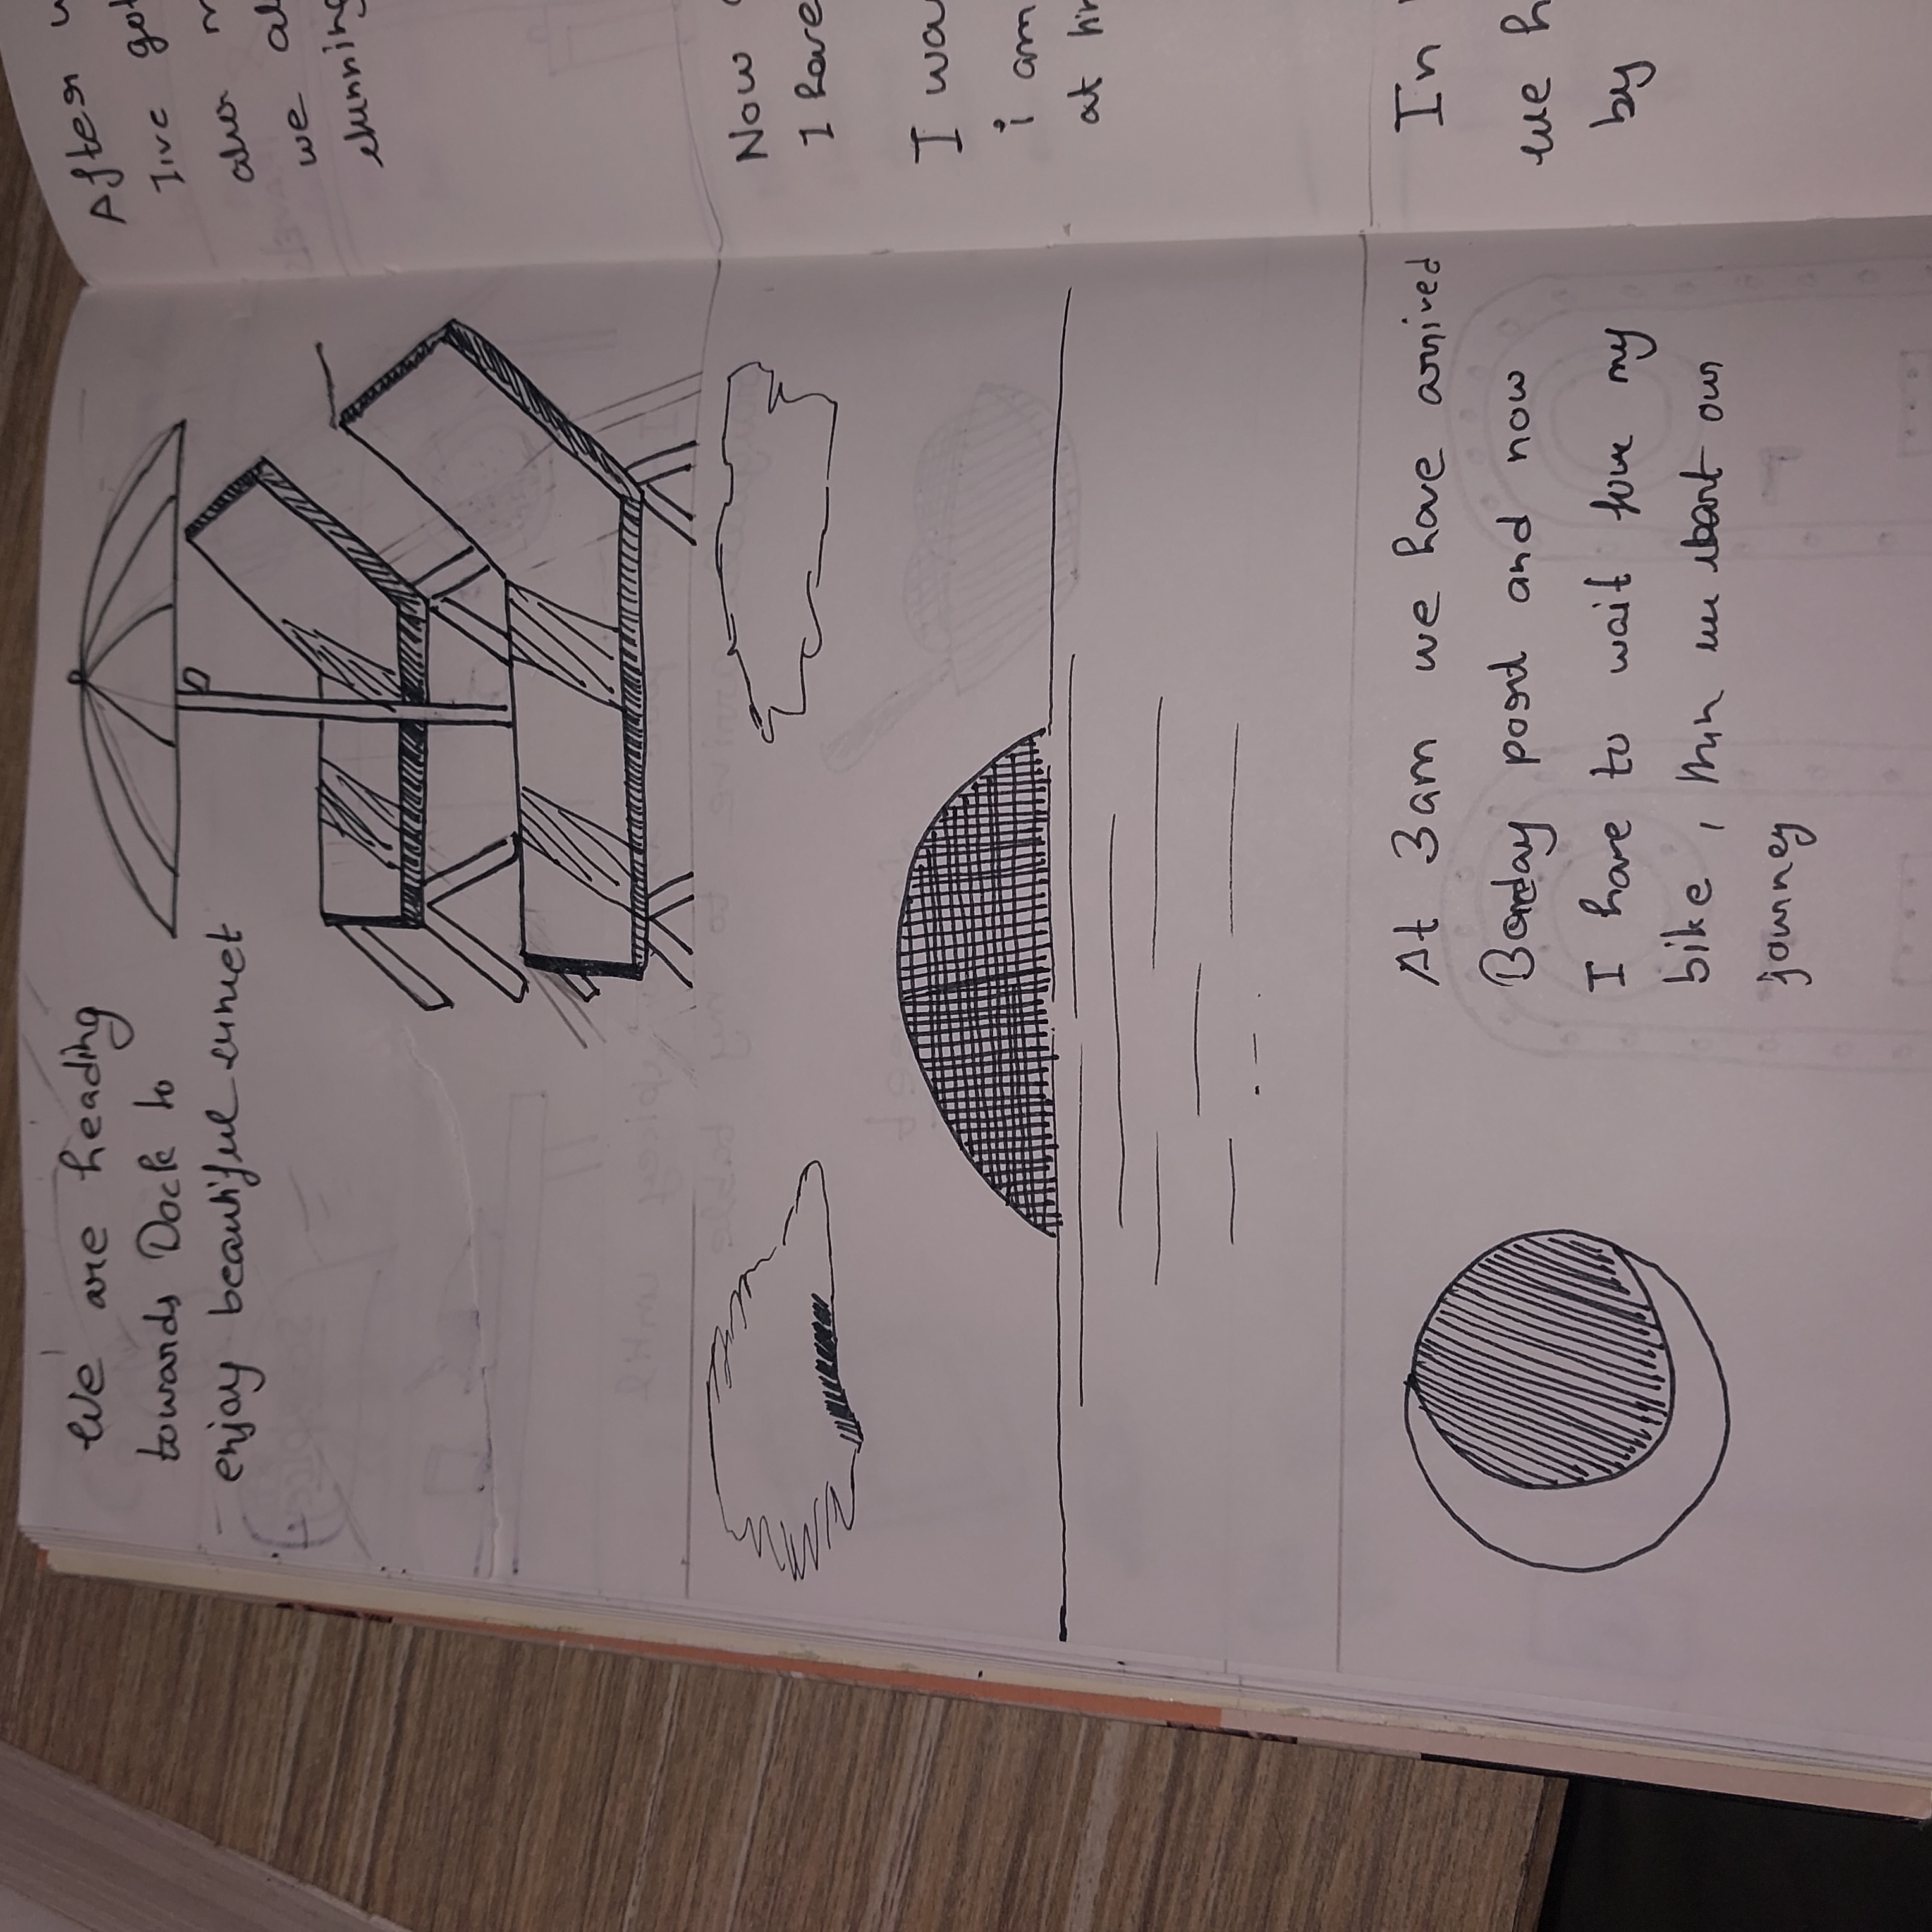 We are heading
towards Dock to
enjoy beautiful sunset
At 3am we have arrived
Borday port and now
I have to wait for my
bike, then we start our
journey
After
live got
also
we al
stunning
Now
I have
I wa
i am
at hi
In
we h
by